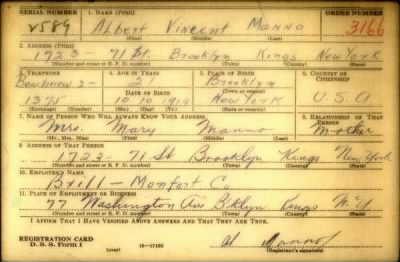 SERIAL NUMBER 1. NAME (Print) ORDER NUMBER
2589 Albert Vincent Manno 3166
(First) (Middle) (Last)
2. ADDRESS (Print)
1723 - 71 St. Brooklyn Kings New York
(Number and street or R. F. D. number) (Town) (County) (State)
3. TELEPHONE 4. AGE IN YEARS 5. PLACE OF BIRTH 6. COUNTRY OF CITIZENSHIP
Beachview 2- 21 Brooklyn
DATE OF BIRTH (Town or county)
1375 10 10 1919 New York U.S.A
7. NAME OF PERSON WHO WILL ALWAYS KNOW YOUR ADDRESS 8. RELATIONSHIP OF THAT PERSON
Mrs. Mary Manno Mother
9. ADDRESS OF THAT PERSON
1723 - 71 St Brooklyn Kings New York
(Number and street or R. F. D. number) (Town) (County) (State)
10. EMPLOYER'S NAME
Monfort Co.
11. PLACE OF EMPLOYMENT OR BUSINESS
77 Washington Ave Bklyn Kings N.Y
(Number and street or R. F. D. number) (Town) (County) (State)
I AFFIRM THAT I HAVE VERIFIED ABOVE ANSWERS AND THAT THEY ARE TRUE.
REGISTRATION CARD
D. S. S. Form 1 (over) 16-17105 (Registrant's signature)